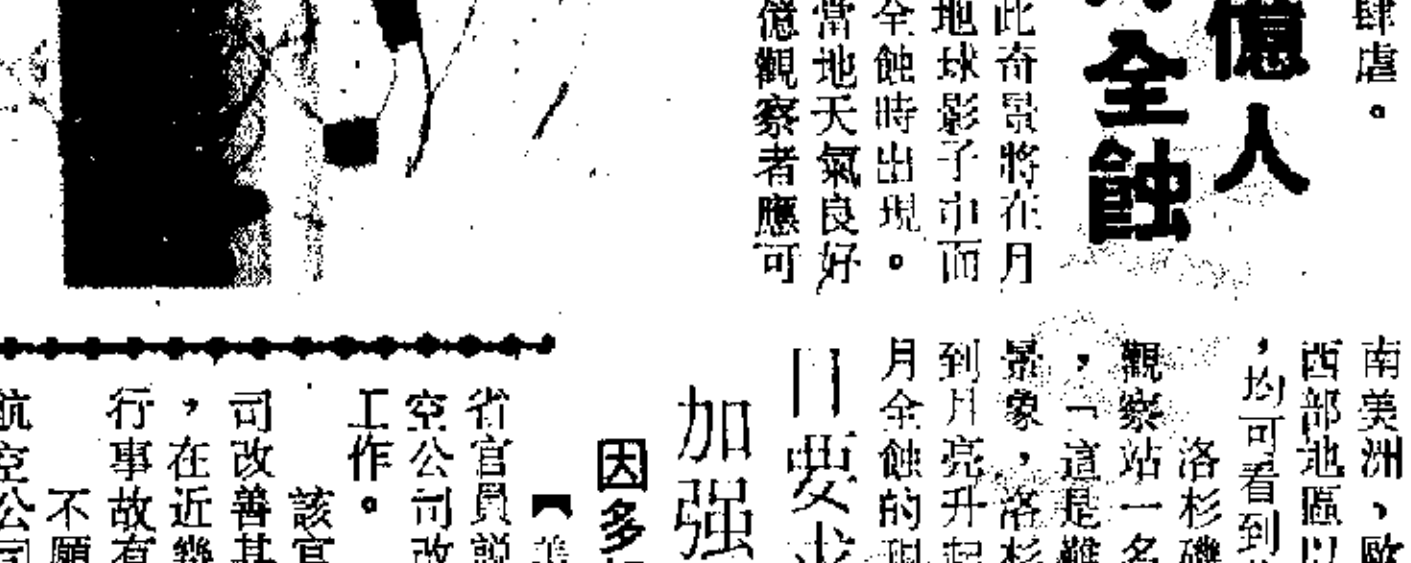 肆虐。
億人
全蝕
此奇景將在月
地球影子中而
全蝕時出現。
當地天氣良好
億觀察者應可
南美洲、歐
西部地區以
，均可看到
洛杉磯
觀察站一名
，「這是難
景象，洛杉
到月亮升起
月全蝕的現
日要求
加强
因多
省官員説
空公司改
工作。
該官
司改善其
，在近幾
行事故有
不願
航空公司